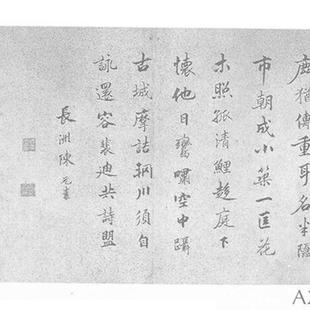 鹿猶傳重耳名半隱
市朝成小築一匡花
木照孤清鯉趍庭下
懷他日鸞嘯空中躡
古城摩詰輞川須自
詠還容裴迪共詩盟
長洲陳元素
AX